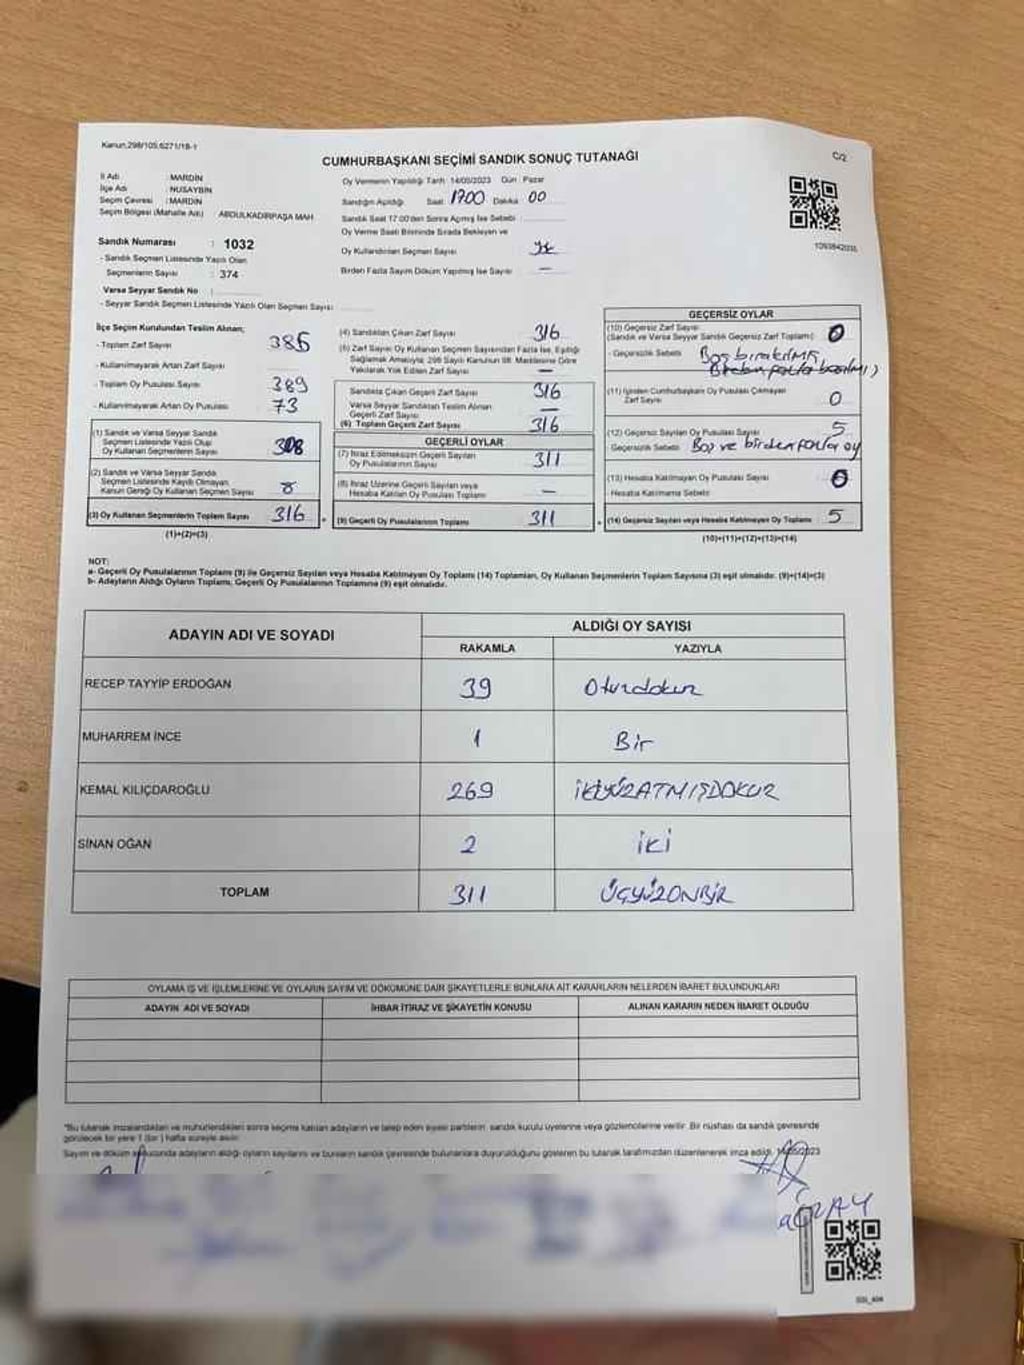 Kanun,298/105,6271/18-1
CUMHURBAŞKANI SEÇİMİ SANDIK SONUÇ TUTANAĞI
C/2
İl Adı : MARDİN
İlçe Adı : NUSAYBİN
Seçim Çevresi : MARDİN
Seçim Bölgesi (Mahalle Adı) ABDULKADİRPAŞA MAH
Sandık Numarası : 1032
- Sandık Seçmen Listesinde Yazılı Olan
Seçmenlerin Sayısı : 374
Varsa Seyyar Sandık No
- Seyyar Sandık Seçmen Listesinde Yazılı Olan Seçmen Sayısı
Oy Vermenin Yapıldığı Tarih 14/05/2023 Gün Pazar
Sandığın Açıldığı Saat 1700 Dakika 00
Sandık Saat 17:00'den Sonra Açmış İse Sebebi
Oy Verme Saati Bitiminde Sırada Bekleyen ve
Oy Kullandırılan Seçmen Sayısı
Birden Fazla Sayım Döküm Yapılmış İse Sayısı —
1093842035
İlçe Seçim Kurulundan Teslim Alınan;
- Toplam Zarf Sayısı 385
- Kullanılmayarak Artan Zarf Sayısı
- Toplam Oy Pusulası Sayısı 389
- Kullanılmayarak Artan Oy Pusulası 73
(1) Sandık ve Varsa Seyyar Sandık
Seçmen Listesinde Yazılı Olup
Oy Kullanan Seçmen Sayısı 308
(2) Sandık ve Varsa Seyyar Sandık
Seçmen Listesinde Kayıtlı Olmayan
Kanun Gereği Oy Kullanan Seçmen Sayısı 8
(3) Oy Kullanan Seçmenlerin Toplam Sayısı 316
(1)+(2)=(3)
(4) Sandıktan Çıkan Zarf Sayısı 316
(5) Zarf Sayısı Oy Kullanan Seçmen Sayısından Fazla İse, Eşitliği
Sağlamak Amacıyla, 298 Sayılı Kanunun 98. Maddesine Göre
Yakılarak Yok Edilen Zarf Sayısı —
Sandıkta Çıkan Geçerli Zarf Sayısı 316
Varsa Seyyar Sandıktan Teslim Alınan
Geçerli Zarf Sayısı —
(6) Toplam Geçerli Zarf Sayısı 316
GEÇERLİ OYLAR
(7) İtiraz Edilmeksizin Geçerli Sayılan
Oy Pusulalarının Sayısı 311
(8) İtiraz Üzerine Geçerli Sayılan veya
Hesaba Katılan Oy Pusulası Toplamı —
(9) Geçerli Oy Pusulalarının Toplamı 311
GEÇERSİZ OYLAR
(10) Geçersiz Zarf Sayısı
(Sandık ve Varsa Seyyar Sandık Geçersiz Zarf Toplamı) 0
- Geçersizlik Sebebi Boş bırakılmış,
Birden fazla basılmış)
(11) İçinden Cumhurbaşkanı Oy Pusulası Çıkmayan
Zarf Sayısı 0
(12) Geçersiz Sayılan Oy Pusulası Sayısı 5
Geçersizlik Sebebi Boş ve birden fazla oy
(13) Hesaba Katılmayan Oy Pusulası Sayısı 0
Hesaba Katılmama Sebebi
(14) Geçersiz Sayılan veya Hesaba Katılmayan Oy Toplamı 5
(10)+(11)+(12)+(13)=(14)
NOT:
a- Geçerli Oy Pusulalarının Toplamı (9) ile Geçersiz Sayılan veya Hesaba Katılmayan Oy Toplamı (14) Toplamları, Oy Kullanan Seçmenlerin Toplam Sayısına (3) eşit olmalıdır. (9)+(14)=(3)
b- Adayların Aldığı Oyların Toplamı, Geçerli Oy Pusulalarının Toplamına (9) eşit olmalıdır.
ADAYIN ADI VE SOYADI
ALDIĞI OY SAYISI
RAKAMLA YAZIYLA
RECEP TAYYİP ERDOĞAN 39 Otuzdokuz
MUHARREM İNCE 1 Bir
KEMAL KILIÇDAROĞLU 269 İKİYÜZATMIŞDOKUZ
SİNAN OĞAN 2 İKİ
TOPLAM 311 ÜÇYÜZONBİR
OYLAMA İŞ VE İŞLEMLERİNE VE OYLARIN SAYIM VE DÖKÜMÜNE DAİR ŞİKAYETLERLE BUNLARA AİT KARARLARIN NELERDEN İBARET BULUNDUKLARI
ADAYIN ADI VE SOYADI İHBAR İTİRAZ VE ŞİKAYETİN KONUSU ALINAN KARARIN NEDEN İBARET OLDUĞU
"Bu tutanak imzalandıktan ve mühürlendikten sonra seçime katılan adayların ve talep eden siyasi partilerin sandık kurulu üyelerine veya gözlemcilerine verilir. Bir nüshası da sandık çevresinde
görülecek bir yere 1 (bir) hafta süreyle asılır.
Sayım ve döküm sonucunda adayların aldığı oyların sayılarını ve bunların sandık çevresinde bulunanlara duyurulduğunu gösteren bu tutanak tarafımızdan düzenlenerek imza edildi. 14/05/2023